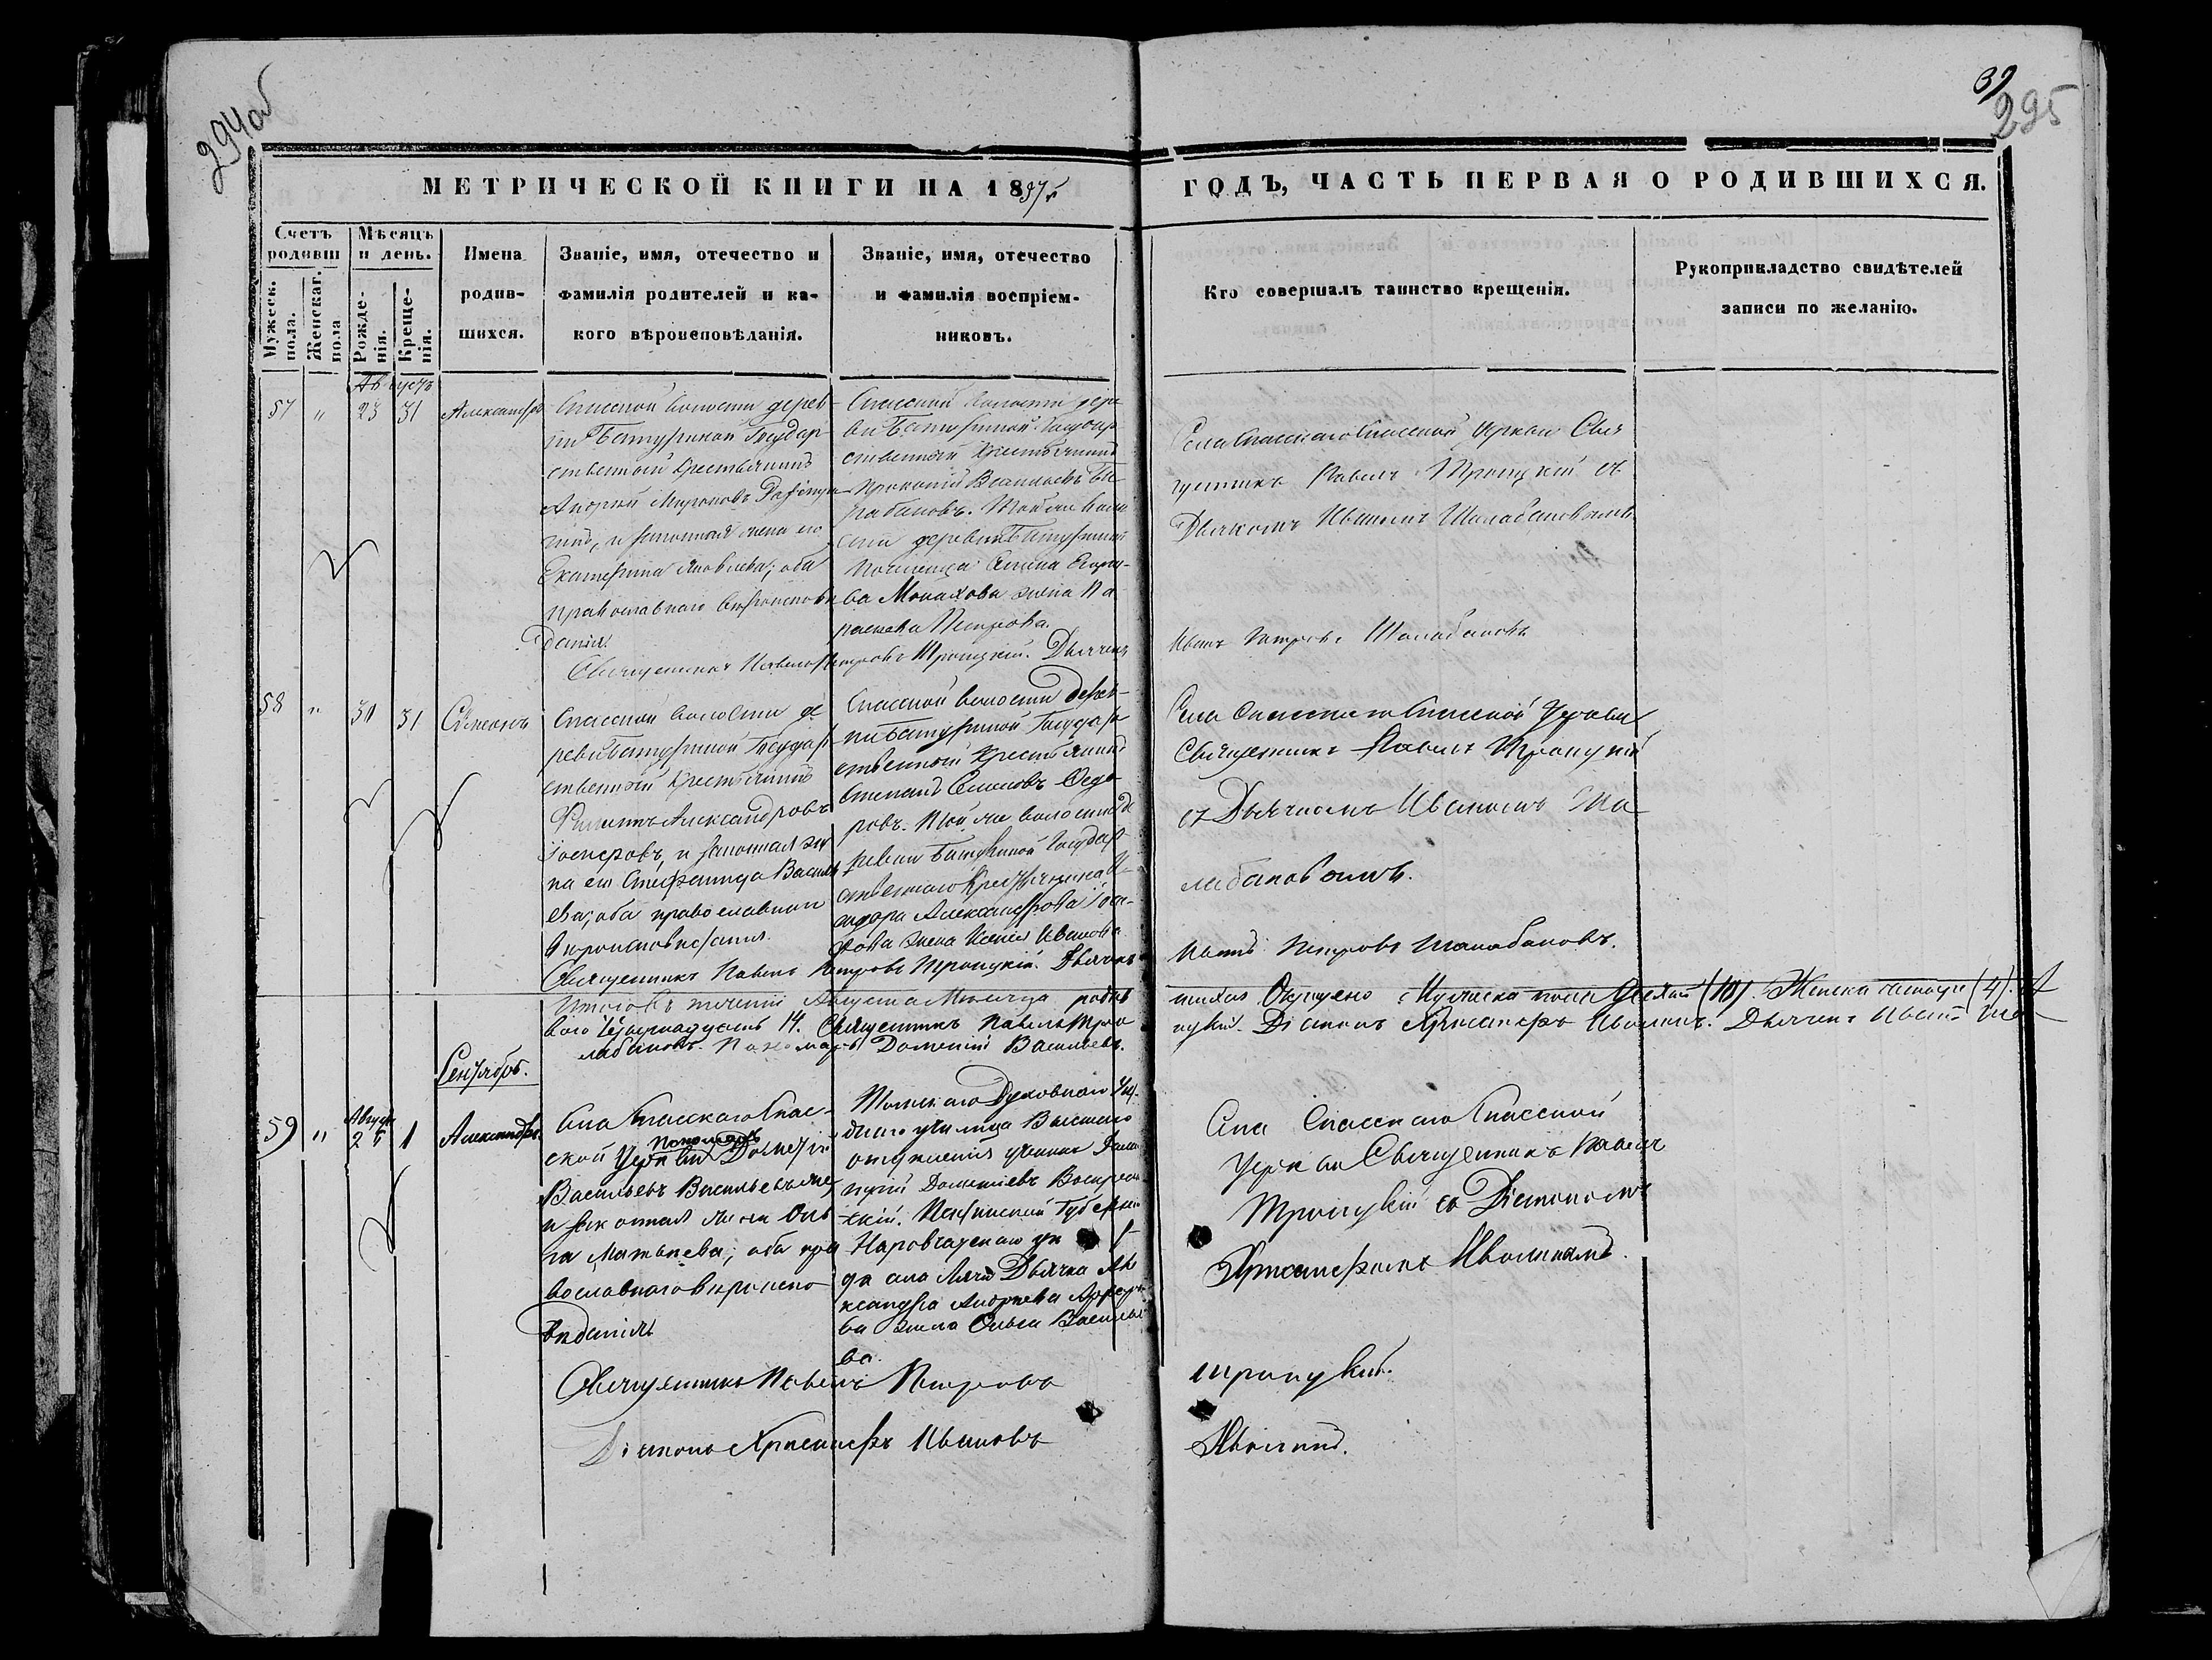 294об
39
295
МЕТРИЧЕСКОЙ КНИГИ НА 18
ГОДЪ, ЧАСТЬ ПЕРВАЯ О РОДИВШИХСЯ.
Счетъ родивш
Мужеск. пола.
Женскаг. пола
Мѣсяцъ и день.
Рожде-
нія.
Креще-
нія.
Имена
родив-
шихся.
Званіе, имя, отечество и
фамилія родителей и ка-
кого вѣроисповѣданія.
Званіе, имя, отечество
и фамилія воспріем-
никовъ.
Кто совершалъ таинство крещенія.
Рукоприкладство свидѣтелей
записи по желанію.
Августъ
57 " 23 31 Александръ
Спасской волости дерев-
ни Батуриной Государ-
ственный крестьянинъ
Андрей Мироновъ
и законная жена его
Екатерина Яковлева; оба
православнаго вѣроисповѣ
данія.
Спасской волости дере
вни Батуриной Государ
ственный крестьянинъ
Прокопій
Той же воло
сти деревни Батуриной
Егоро-
ва Монахова жена Па
раскева Петрова.
Села Спасскаго Спасской Церкви Свя
щенникъ Павелъ Троицкій съ
Дьячкомъ Иваномъ Шалабановымъ
Священникъ Павелъ Петровъ Троицкій. Дьячекъ
Иванъ Петровъ Шалабановъ
58 " 30 31 Сѵмеонъ
Спасской волости де
ревни Батуриной Государ
ственный крестьянинъ
Филиппъ Александровъ
и законная же
на его Стефанида Василь
ева; оба православнаго
вѣроисповѣданія.
Спасской волости дерев-
ни Батуриной Государ
ственный крестьянинъ
Степанъ Семеновъ Федо
ровъ. Той же волости де
ревни Батуриной Государ
ственнаго крестьянина И-
сидора Александрова
жена Ксенія Иванова
Села Спасскаго Спасской Церкви
Священникъ Павелъ Троицкій
съ Дьячкомъ Иваномъ Ша
лабановымъ.
Священникъ Павелъ Петровъ Троицкій. Дьячекъ
Иванъ Петровъ Шалабановъ.
Итого въ теченіи Августа Мѣсяца родив
шихся Мужеска пола десять (10). Женска четыре (4). А
всего Четырнадцать 14. Священникъ Павелъ Трои
цкій. Діаконъ Хрисанфъ Ивановъ. Дьячекъ Иванъ Ша-
лабановъ. Пономарь Дометій Васильевъ.
Сентябрь.
59 " Августа 25 1 Александръ
Села Спасскаго Спас-
ской Церкви Пономарь Дометій
Васильевъ
и законная жена Оль
га Матвеева; оба пра
вославнаго вѣроиспо
вѣданія
Томскаго Духовнаго Уѣз-
днаго училища Высшаго
отдѣленія ученикъ
Дометіевъ Воскресен
скій. Пензенской Губерніи
Наровчатскаго уѣ
да села Дьячка Але
ксандра Андреева
ва жена Ольга Василье
ва.
Села Спасскаго Спасской
Церкви Священникъ Павелъ
Троицкій съ Діакономъ
Хрисанфомъ
Священникъ Павелъ Петровъ
Троицкій.
Діаконъ Хрисанфъ Ивановъ